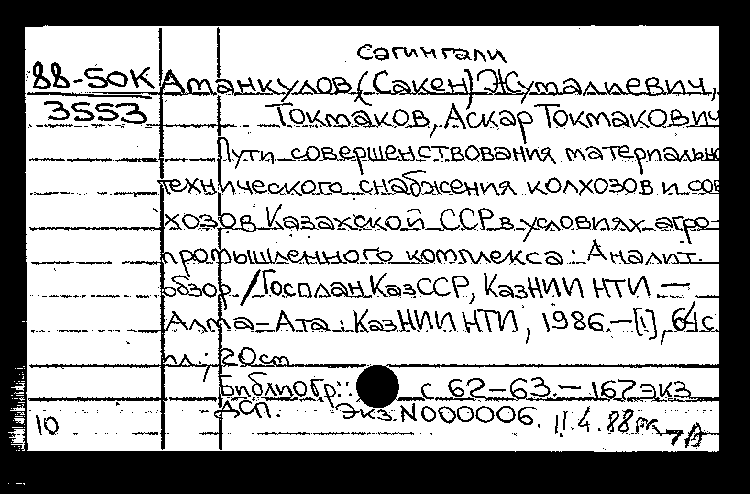 сагингали
88-50К Аманкулов (Сакен) Жумалиевич,
3553 Токмаков, Аскар Токмакович
Пути совершенствования материально
технического снабжения колхозов и сов
хозов Казахской ССР в условиях агро-
промышленного комплекса: Аналит.
обзор. / Госплан КазССР, КазНИИ НТИ. —
Алма-Ата: КазНИИ НТИ, 1986. — [1], 64 с
ил.; 20 cm
Библиогр.: с 62-63. — 167 экз
ДСП. Экз. N000006.
10 II.4.88